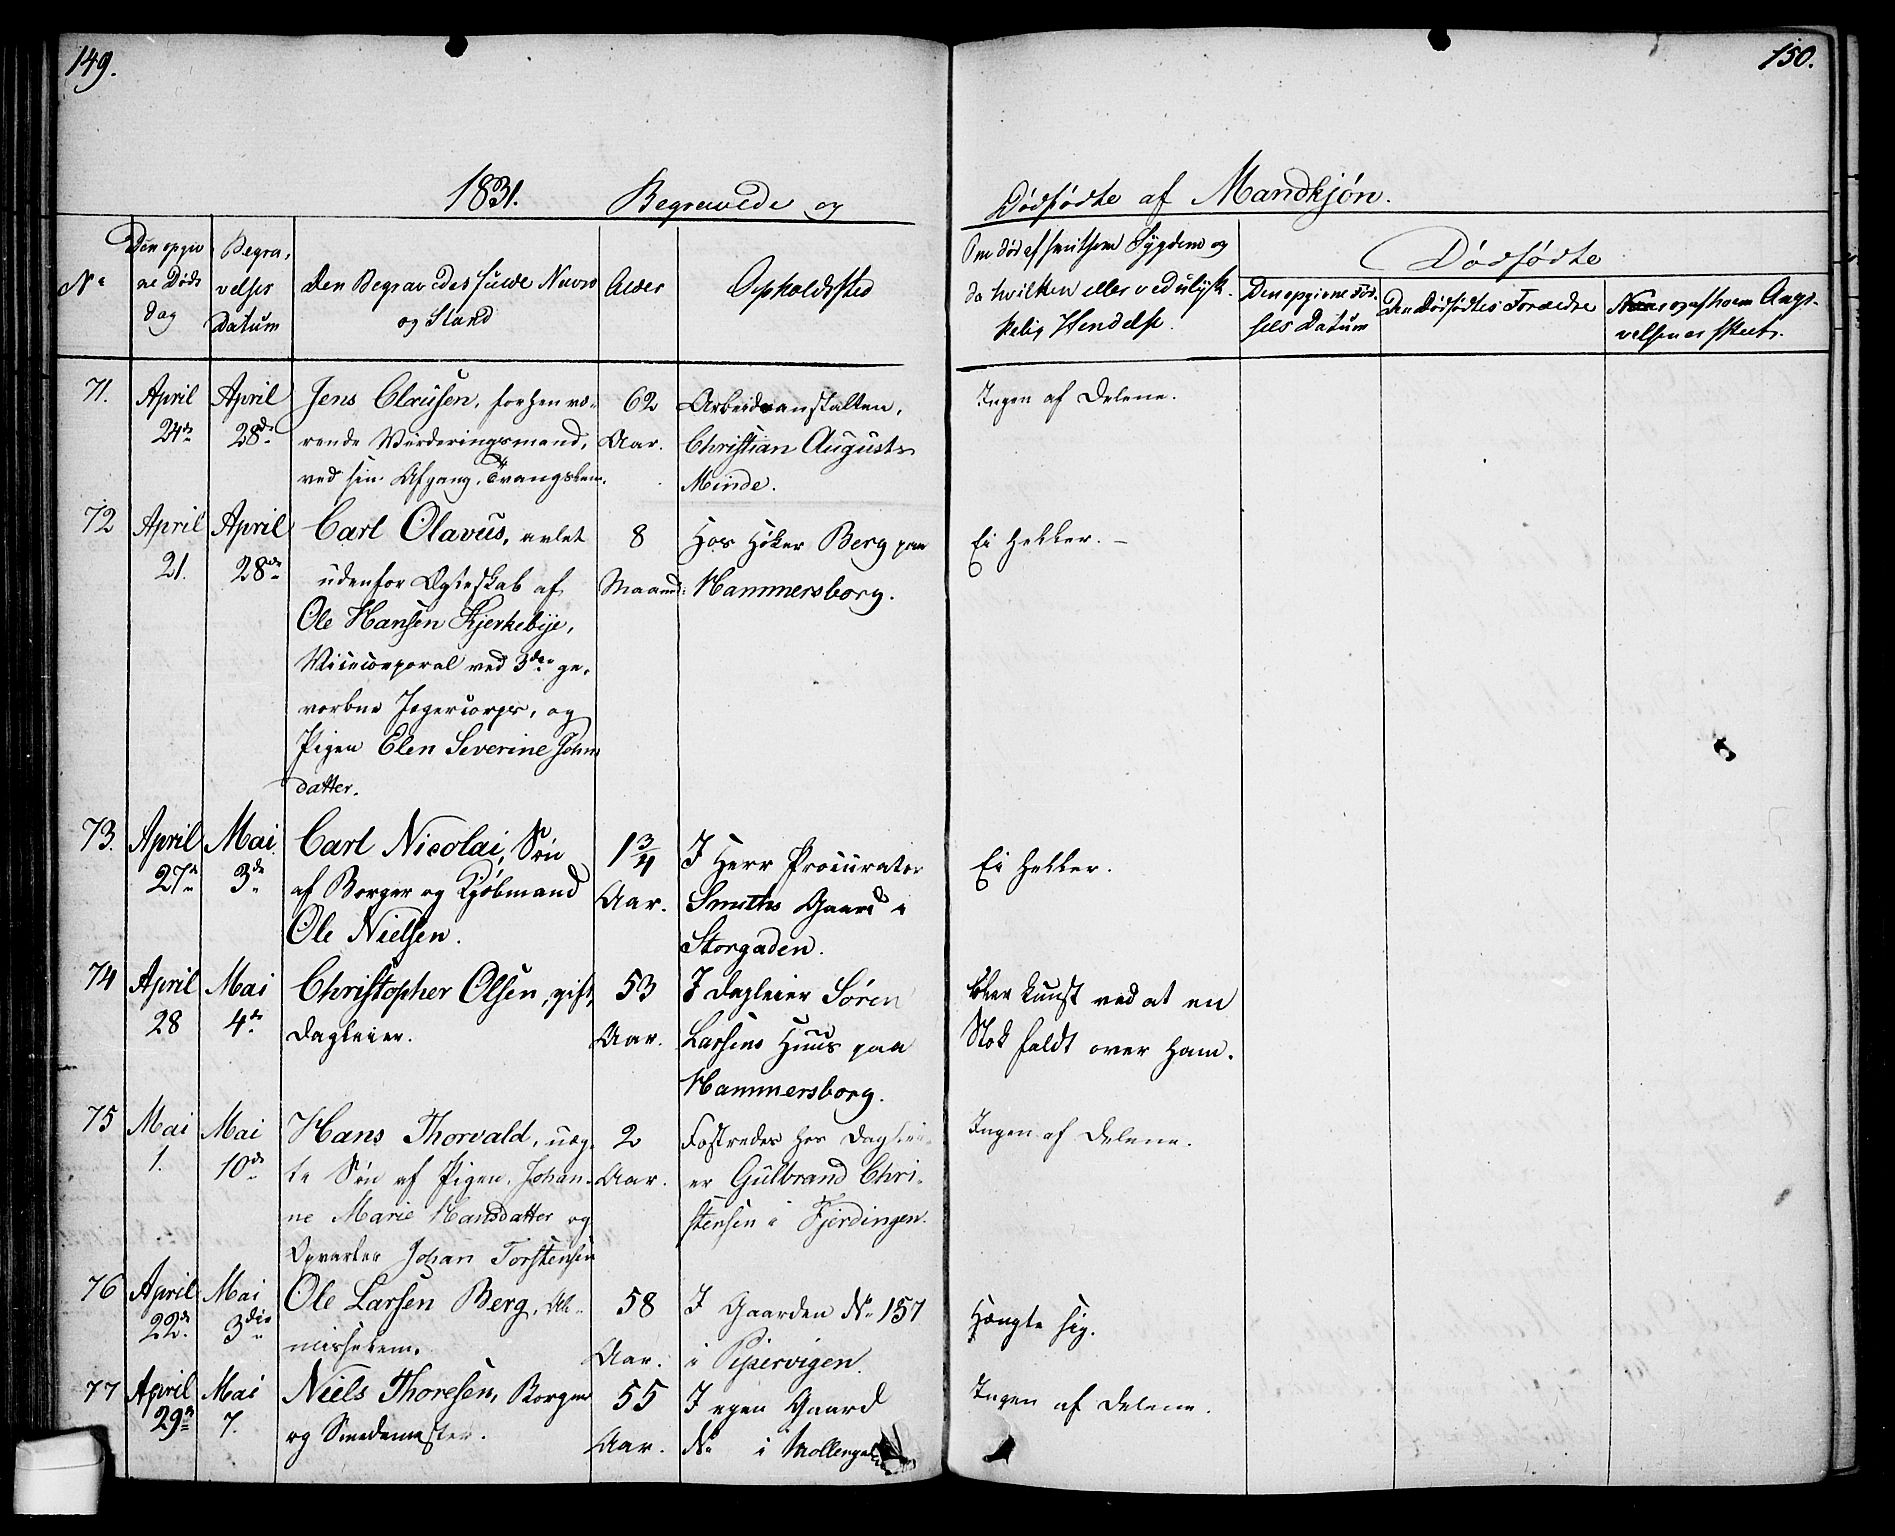 149.
150.
1831. Begravede og
Dødfødte af Mandkjøn.
No
Den opgiv
ne Døds
dag
Begra-
velses
Datum
Den Begravedes fulde Navn
og Stand
Alder
Opholdsted
Om død af smitsom Sygdom og
da hvilken eller ved ulyk-
kelig Hendelse.
Dødfødte
Den opgivne Fød-
sels Datum
Den Dødfødtes Forældre
Naar og af hvem Angi-
velsen er skeet.
71.
April
24de
April
28de
Jens Clausen, forhenvæ-
rende Vurderingsmand,
ved sin Afgang, Tvangslem.
62
Aar.
Arbeidsanstalten,
Christian Augusts
Minde.
Ingen af Delene.
72
April
21.
April
28de
Carl Olavus, avlet
udenfor Ægteskab af
Ole Hansen Kjerkebye,
Vicecorporal ved 3die ge-
vorbne Jægercorps, og
Pigen Elen Severine Johns
datter.
8
Maaned:
Hos Høker Berg paa
Hammersborg.
Ei heller. –
73.
April
27de
Mai
3de
Carl Nicolai, Søn
af Borger og Kjøbmand
Ole Nielsen.
1 3/4
Aar.
I Herr Procurator
Smiths Gaard i
Storgaden.
Ei heller.
74
April
28
Mai
4de
Christopher Olsen, gift,
Dagleier.
53
Aar.
I Dagleier Søren
Larsens Huus paa
Hammersborg.
ved at en
Stok faldt over ham.
75
Mai
1.
Mai
10de
Hans Thorvald, uæg-
te Søn af Pigen Johan-
ne Marie Hansdatter og
Opvarter Johan Torstensen
2
Aar.
Fostredes hos Daglei-
er Gulbrand Chri-
stensen i Fjerdingen.
Ingen af Delene.
76
April
22de
Mai
3die
Ole Larsen Berg, Al-
misselem.
58
Aar.
I Gaarden No 157
i Pipervigen.
Hængte sig.
77
April
29de
Mai
7.
Niels Thoresen, Borger
og Smedemester.
55
Aar.
I egen Gaard
No i
Ingen af Delene.